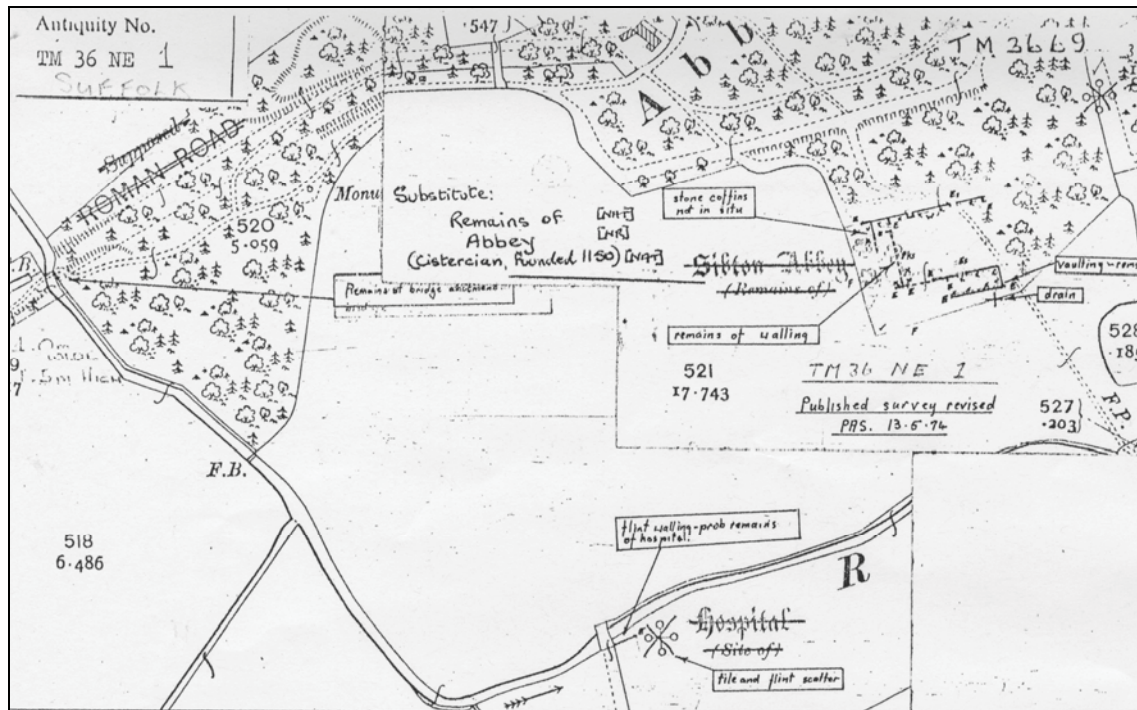 Antiquity No.
TM 36 NE 1
SUFFOLK
·547
A b b
TM 3669
Supposed
ROMAN ROAD
520
5·059
Monu
Substitute:
Remains of [NH]
Abbey [NR]
(Cistercian, founded 1150) [NAT]
stone coffins
not in situ
Sibton Abbey
(Remains of)
Remains of bridge
vaulting-rems
drain
remains of walling
521
17·743
TM 36 NE 1
Published survey revised
PAS. 13·5·74
527
·203
528
·18
F.P.
·5m HIGH
F.B.
518
6·486
flint walling-prob remains
of hospital.
R
Hospital
(Site of)
tile and flint scatter